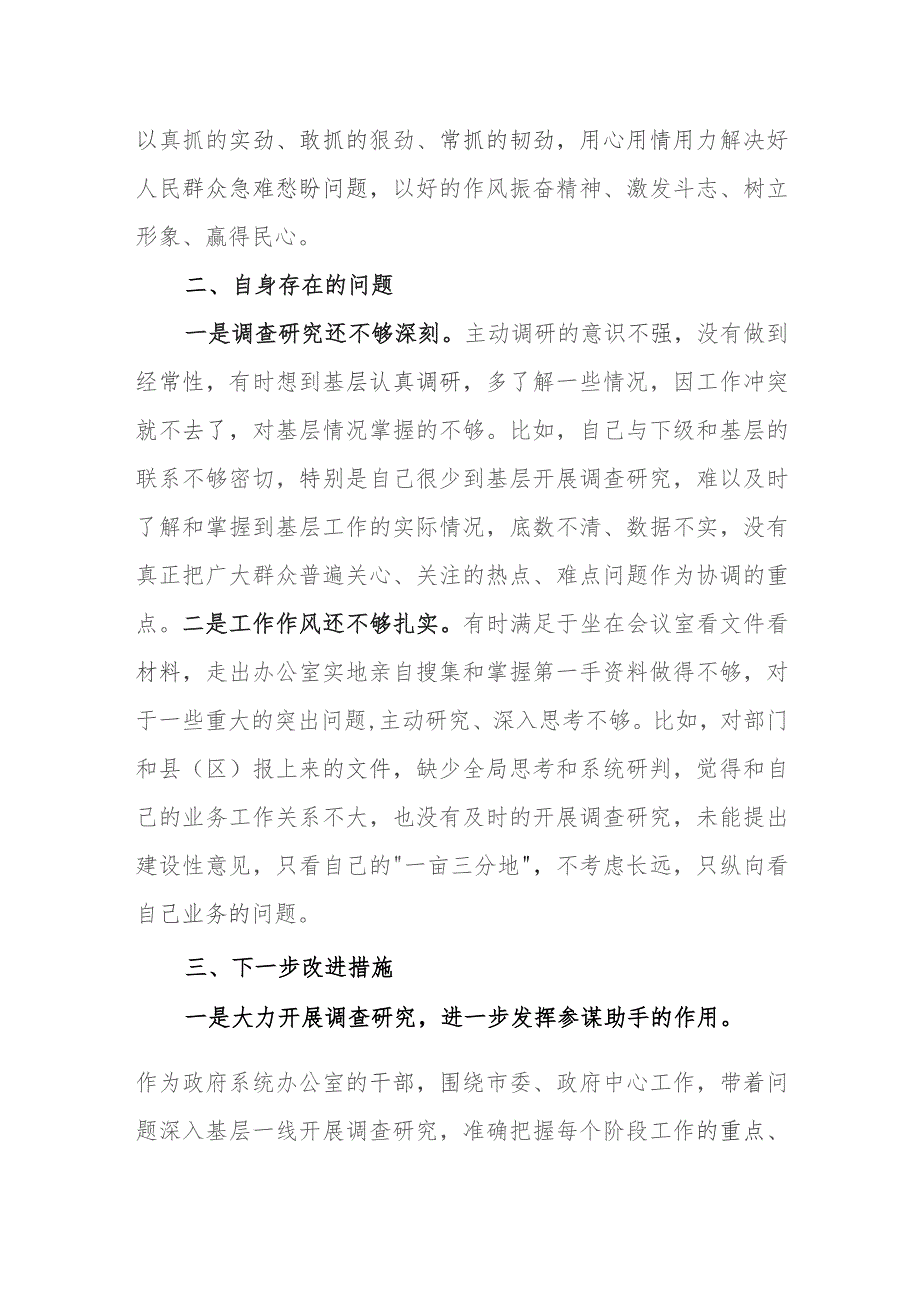 以真抓的实劲、敢抓的狠劲、常抓的韧劲，用心用情用力解决好
人民群众急难愁盼问题，以好的作风振奋精神、激发斗志、树立
形象、赢得民心。
二、自身存在的问题
一是调查研究还不够深刻。主动调研的意识不强，没有做到
经常性，有时想到基层认真调研，多了解一些情况，因工作冲突
就不去了，对基层情况掌握的不够。比如，自己与下级和基层的
联系不够密切，特别是自己很少到基层开展调查研究，难以及时
了解和掌握到基层工作的实际情况，底数不清、数据不实，没有
真正把广大群众普遍关心、关注的热点、难点问题作为协调的重
点。二是工作作风还不够扎实。有时满足于坐在会议室看文件看
材料，走出办公室实地亲自搜集和掌握第一手资料做得不够，对
于一些重大的突出问题,主动研究、深入思考不够。比如，对部门
和县（区）报上来的文件，缺少全局思考和系统研判，觉得和自
己的业务工作关系不大，也没有及时的开展调查研究，未能提出
建设性意见，只看自己的"一亩三分地"，不考虑长远，只纵向看
自己业务的问题。
三、下一步改进措施
一是大力开展调查研究，进一步发挥参谋助手的作用。
作为政府系统办公室的干部，围绕市委、政府中心工作，带着问
题深入基层一线开展调查研究，准确把握每个阶段工作的重点、